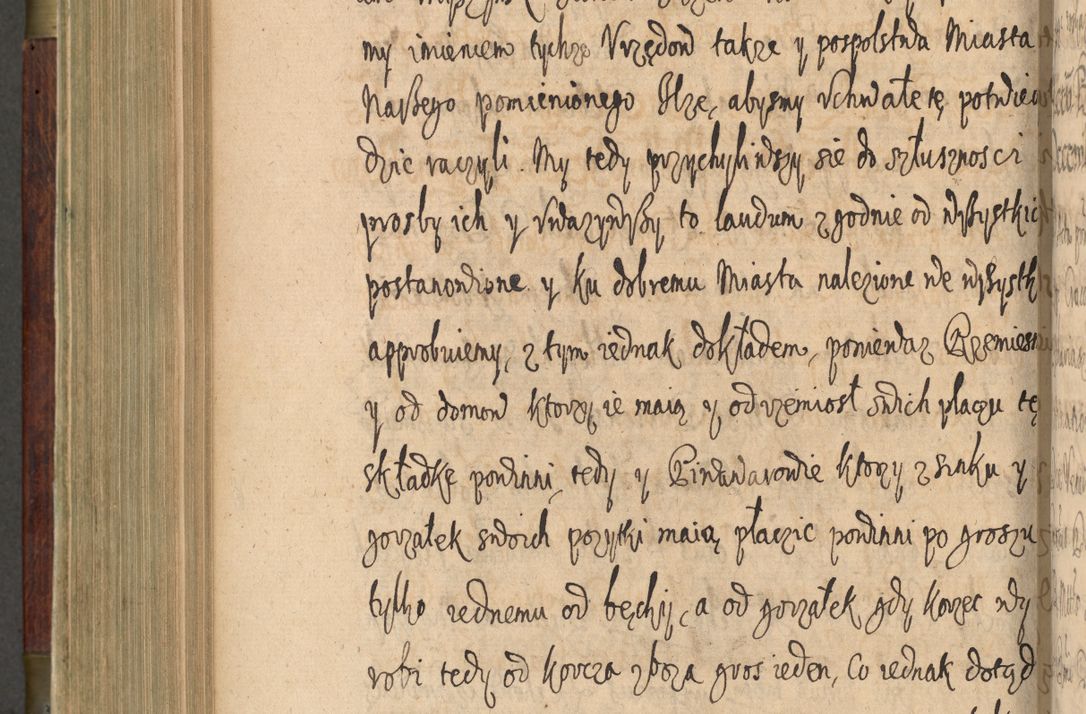 my imieniem tychze Vrzędow takze y pospolstwa Miasta
Naszego pomienionego Ilzę, abysmy Vchwałe tę potwier
dzic raczyli. My tedy przychyliwszy sie do szłusznosci
prosby ich y Vwazywszy to laudum zgodnie od wszystkich
postanowione y ku dobremu Miasta nalezione we wszystk
approbuiemy, z tym iednak dokładem, poniewaz Rzemiesni
y od domow ktorzy ie maią y od rzemiosł swich placzu tę
składkę powinni, tedy y Piwawarowie ktorzy z sinku y
gorzałek swoich pozytki maią płaczic powinni po groszu
tylko iednemu od beçhy, a od gorzałek gdy korzec wy
robi tedy od korcza zboza gros ieden, Co iednak dotyd